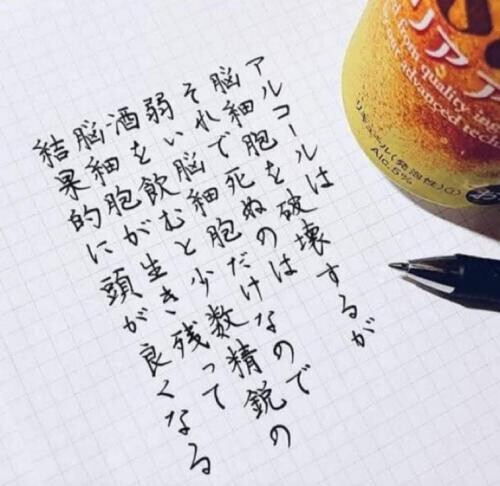 アルコールは
脳細胞を破壊するが
それで死ぬのは
弱い脳細胞だけなので
酒を飲むと少数精鋭の
脳細胞が生き残って
結果的に頭が良くなる
リア
ア
from quality in
our advanced
リキュール(発泡性)①
Alc.5%